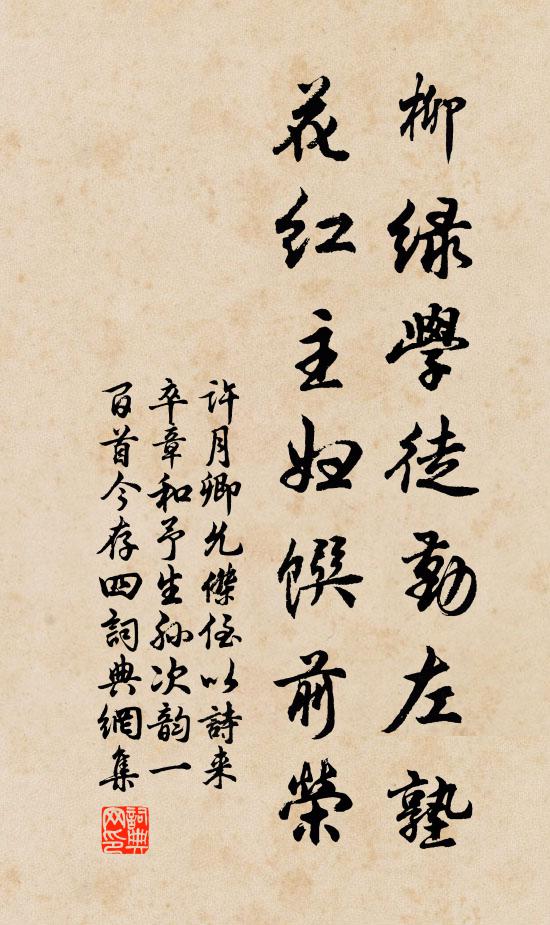 柳绿學徒勤左塾
花红主妇馔前榮
许月卿允傑侄以詩来
卒章和予生孙次韵一
百首今存四詞典網集
詞典网印